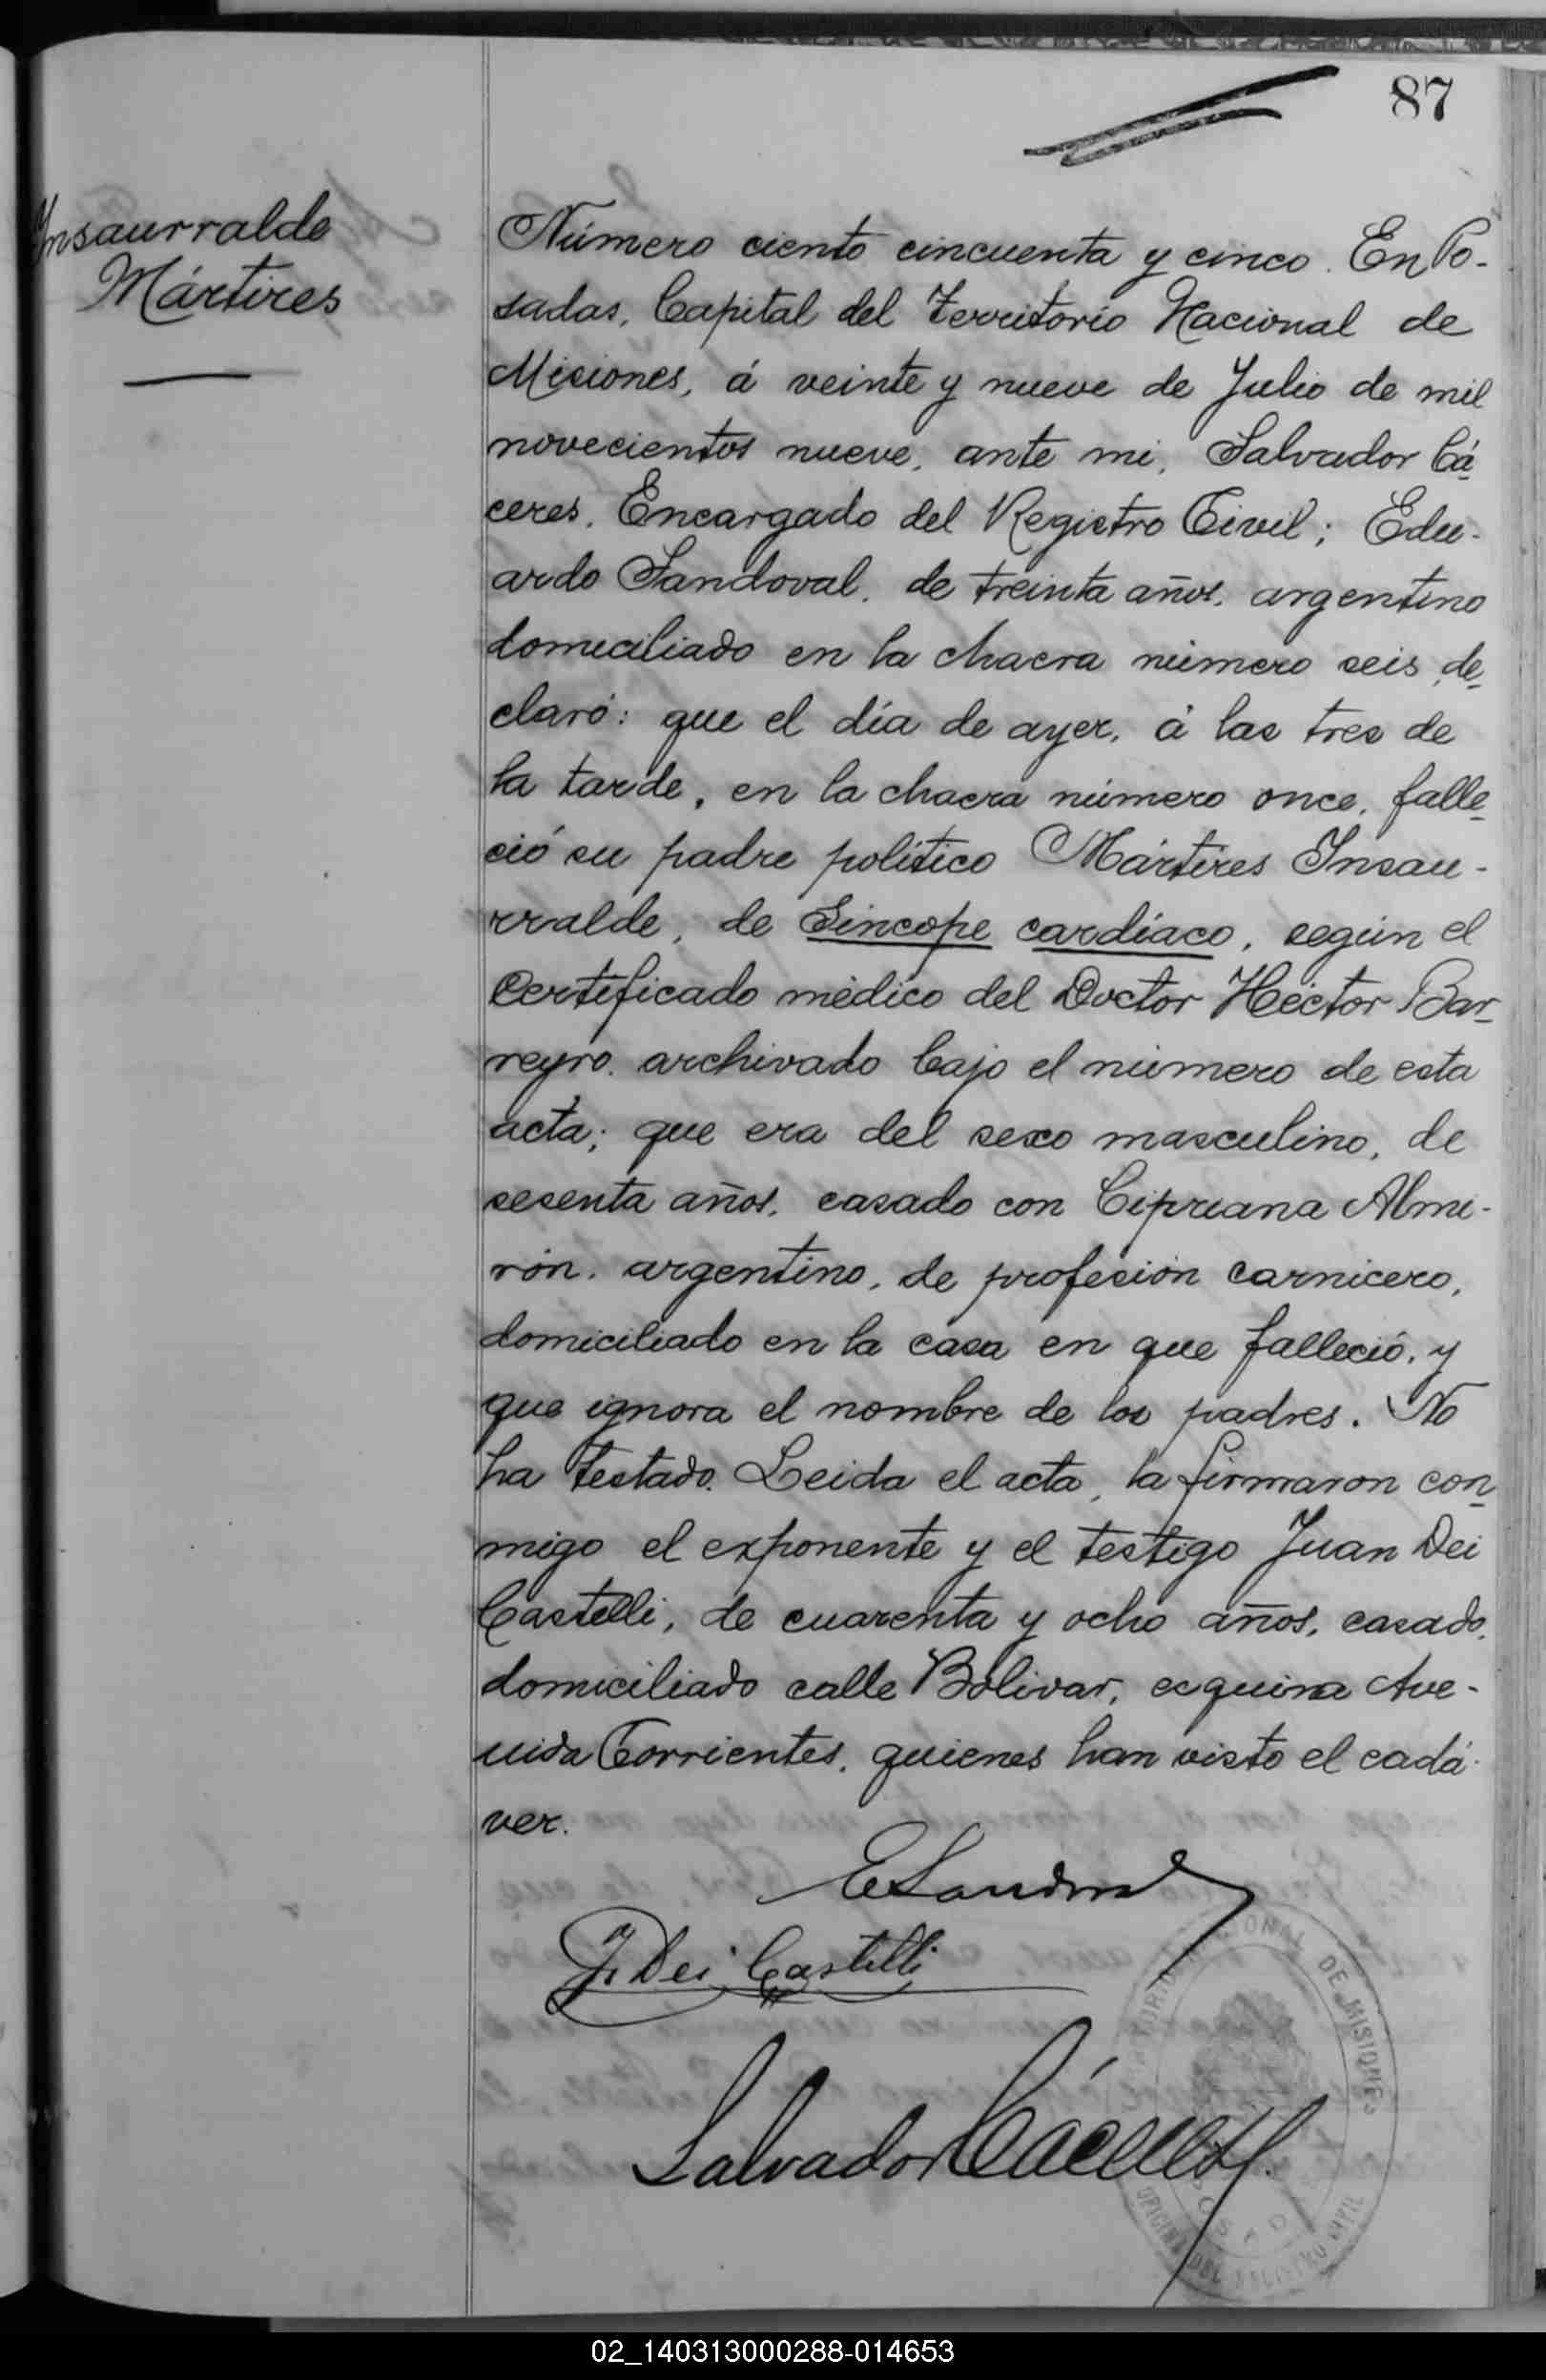 87
Insaurralde
Mártires
Número ciento cincuenta y cinco. En Po-
sadas, Capital del Territorio Nacional de
Misiones, á veinte y nueve de Julio de mil
novecientos nueve, ante mi, Salvador Cá
ceres, Encargado del Registro Civil; Edu-
ardo Sandoval, de treinta años, argentino
domiciliado en la chacra número seis, de
claró: que el día de ayer, á las tres de
la tarde, en la chacra número once, falle
ció su padre político Mártires Insau-
rralde, de Síncope cardíaco, según el
certificado médico del Doctor Héctor Bar
reyro, archivado bajo el número de esta
acta; que era del sexo masculino, de
sesenta años, casado con Cipriana Almi-
rón, argentino, de profesión carnicero,
domiciliado en la casa en que falleció, y
que ignora el nombre de los padres. No
ha testado. Leida el acta, la firmaron con
migo el exponente y el testigo Juan Dei
Castelli, de cuarenta y ocho años, casado,
domiciliado calle Bolivar, esquina Ave-
nida Corrientes, quienes han visto el cadá-
ver.
E Sandoval
J. Dei Castelli
Salvador Cáceres
DE MISIONES
02_140313000288-014653